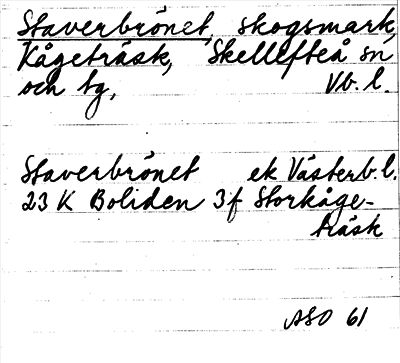 Staverbrönet, skogsmark,
Kågeträsk, Skellefteå sn
och tg, Vb. l.
Staverbrönet ek Västerb. l.
23 K Boliden 3f Storkåge-
träsk
ASO 61